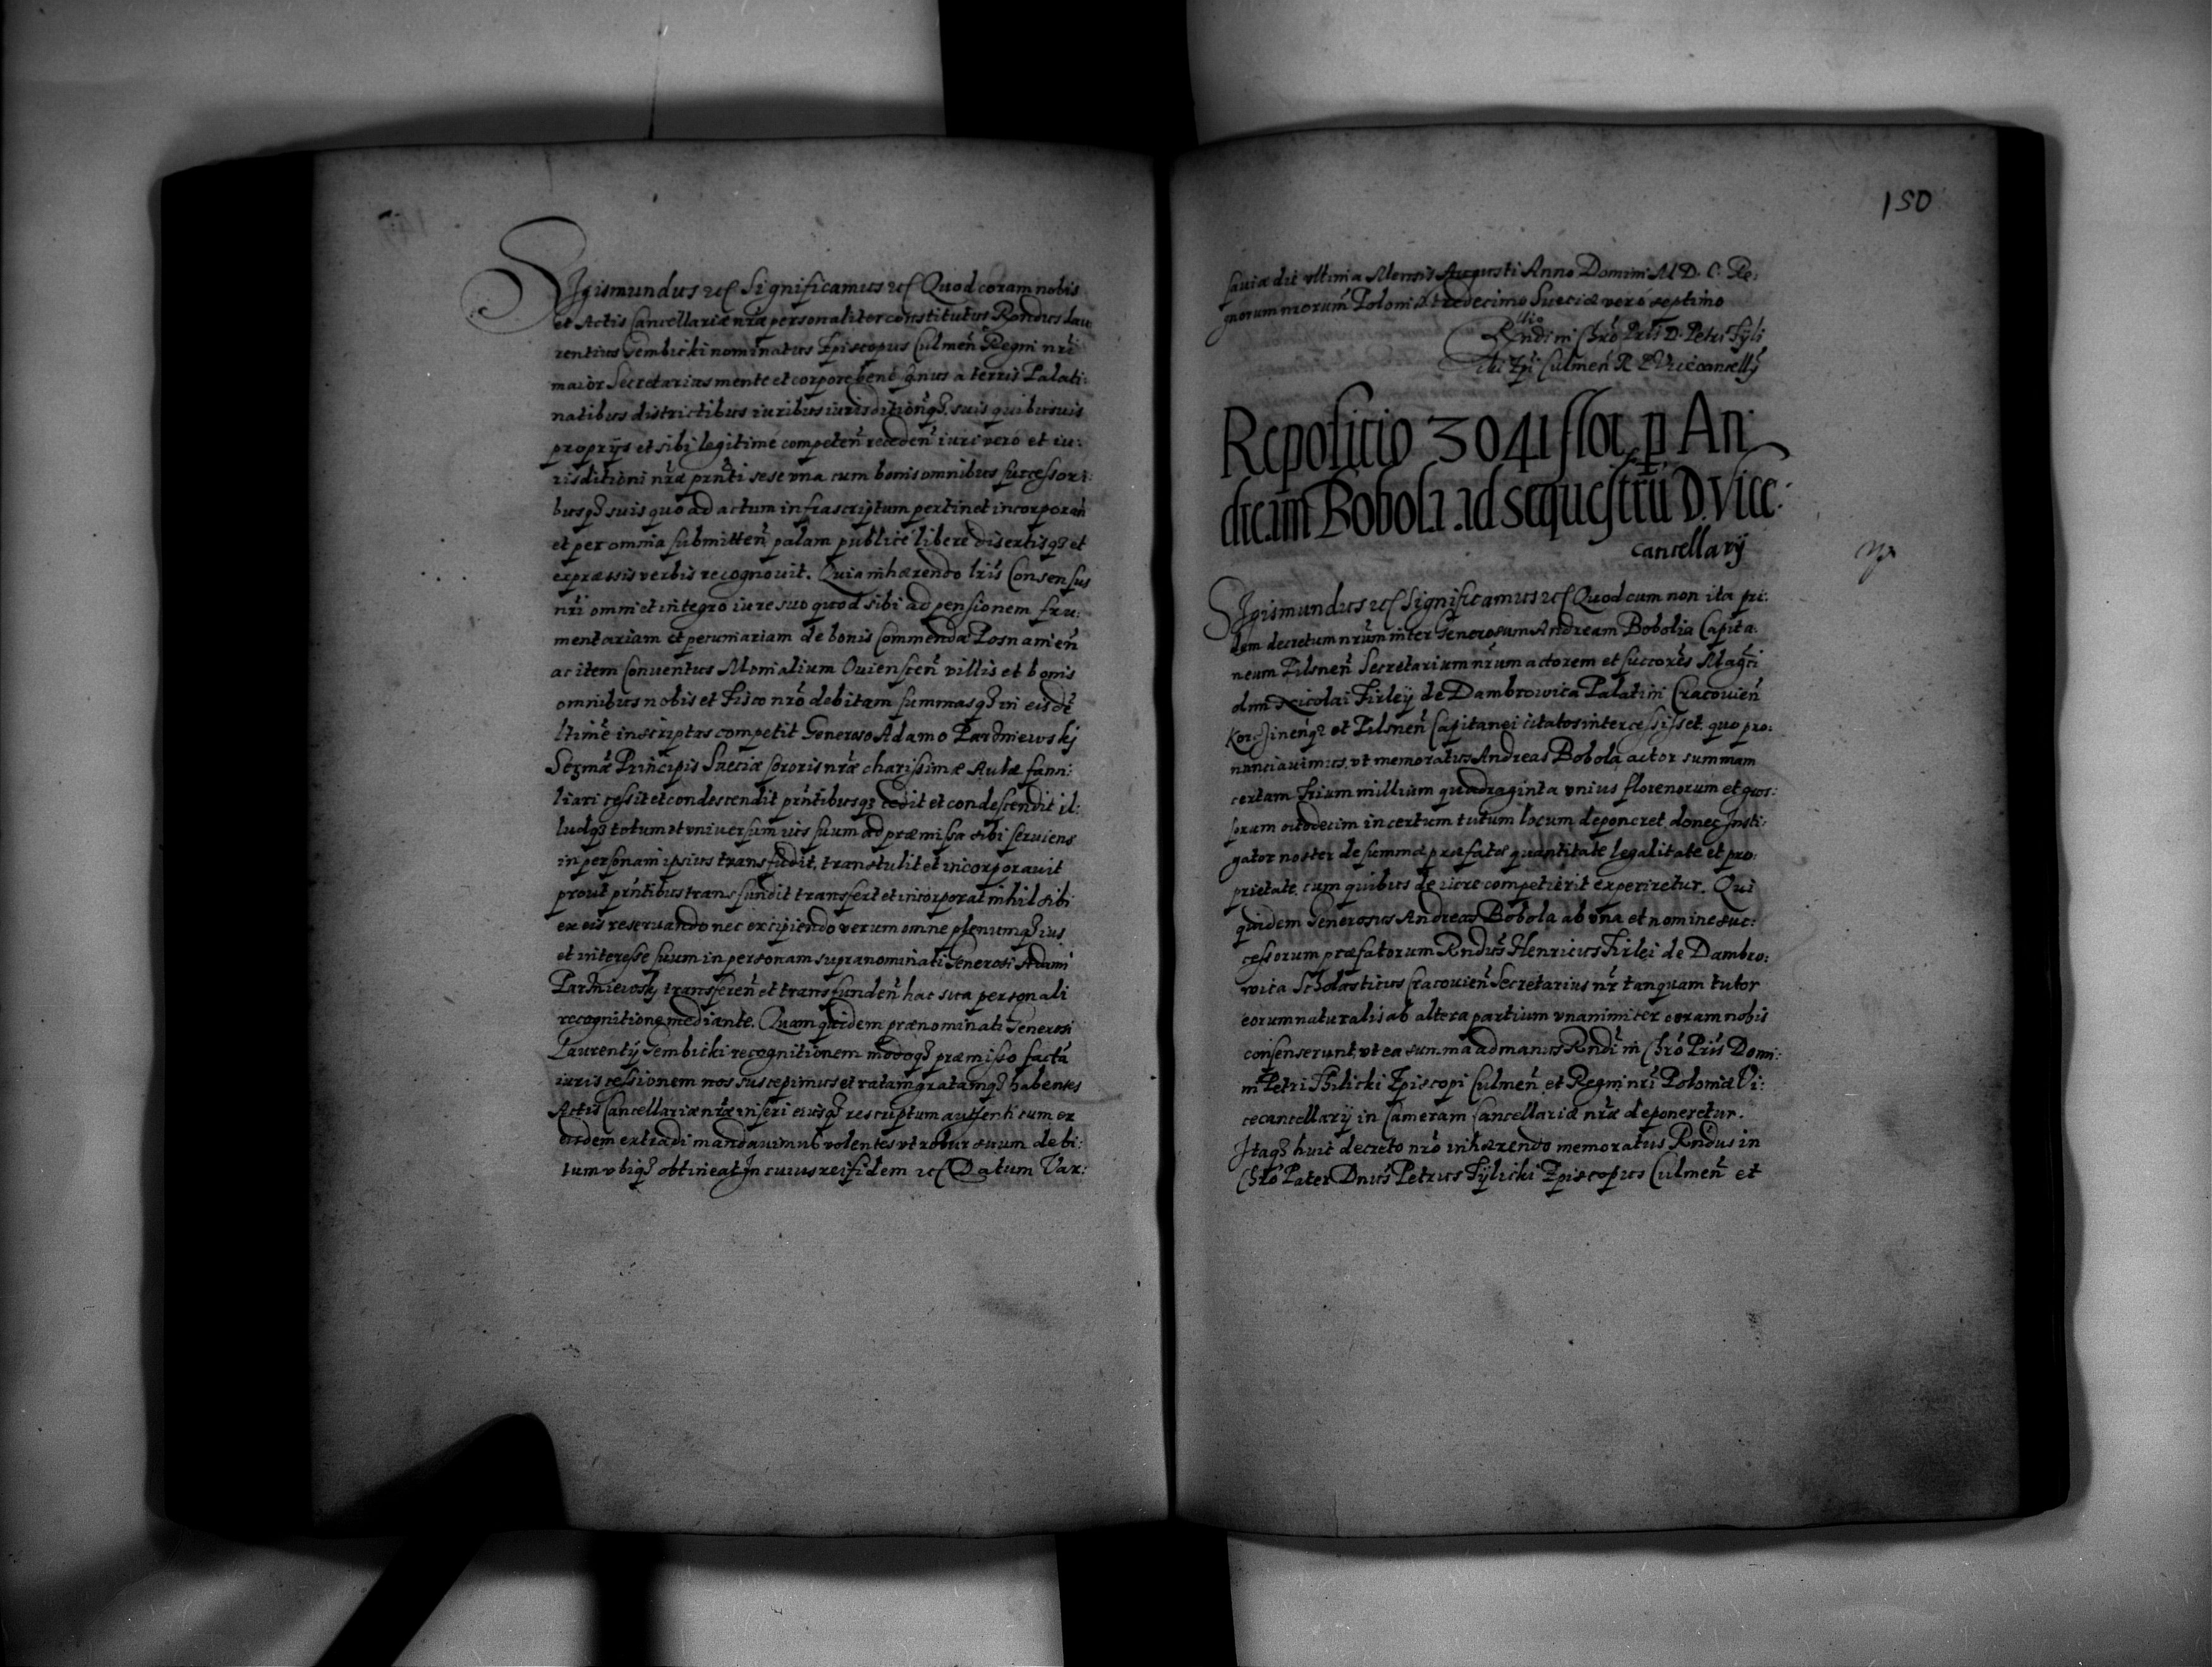 Sigismundus etc Significamus etc Quod coram nobis
et Actis Cancellariæ nr̃æ personaliter constitutus Rondus Lau
rentius Gembicki nominatus Episcopus Culmen̄ Regni nr̃i
maior Secretarius mente et corpore bene sanus a terris Palati:
natibus districtibus iuribus iurisditionq̃ suis quibusuis
proprijs et sibi legitime competen̄ receden̄ iuri vero et iu:
risditioni nr̃æ prn̄ti sese vna cum bonis omnibus successori:
busq̃ suis quo ad actum infrascriptum pertinet incorporan̄
et per omnia submitten̄ palam publice libere disertisq̃ et
expræssis verbis recognouit. Quia inhærendo lr̃is Consensus
nr̃i omni et integro iure suo quod sibi ad pensionem fru:
mentariam et pecuniariam de bonis Commendæ Posnanien̄
ac item Conuentus Monialium Ouienscen̄ villis et bonis
omnibus nobis et Fisco nr̃o debitam summasq̃ in eisdē
ltime inscriptas competit Generoso Adamo Parzniewskj
Sermæ Principis Sueciæ sororis nr̃æ charissimæ Aulæ fami:
liari cessit et condescendit prn̄tibusq̃ cedit et condescendit il:
ludq̃ totum et vniuersum ius suum ad præmissa sibi seruiens
in personam ipsius transfudit, transtulit et incorporauit
prout prn̄tibus transfundit transfert et incorporat nihil sibi
ex eis reseruando nec excipiendo verum omne plenumq̃ ius
et interesse suum in personam supranominati Generosi Adami
Parzniewskj transferen̄ et transfunden̄ hac sua personali
recognitione mediante. Quam quidem prænominati Generosi
Laurentij Gembicki recognitionem modoq̃ præmisso factā
iuris cessionem nos suscepimus et ratam gratamq̃ habentes
Actis Cancellariæ nr̃æ inseri eiusq̃ rescriptum authenticum ex
eisdem extradi mandauimus volentes vt robur suum debi:
tum vbiq̃ obtineat In cuius rei fidem etc Datum Var:
150
sauiæ die vltima Mensis Augusti Anno Domini M D. C. Re:
gnorum nrorum Poloniæ tredecimo Sueciæ vero septimo
Rltio
Rndi in Chro Pris D. Petri Tyli
cki Epi Culmen̄ R P Vicecancellij
Repositio 3041 flor. p An
dream Bobola ad sequestrū D. Vice:
cancellarij
Sigismundus etc Significamus etc Quod cum non ita pri:
dem decretum nr̃um inter Generosum Andream Bobolia Capita:
neum Pilsnen̄ Secretarium nr̃um actorem et succores Magci
olim Nicolai Firleij de Dambrowica Palatini Cracouien̄
Korczinenq̃ et Pilsnen̄ Capitanei citatos intercessisset. quo pro:
nunciauimus, vt memoratus Andreas Bobola actor summam
certam trium millium quadraginta vnius florenorum et gros:
sorum octodecim in certum tutum locum deponeret donec Insti:
gator noster de summæ præfatæ quantitate legalitate et pro:
prietate, cum quibus de iure competierit experiretur. Qui
quidem Generosus Andreas Bobola ab vna et nomine suc:
cessorum præfatorum Rndus Henricus Firlei de Dambro:
wica Scholasticus Cracouien̄ Secretarius nr̃ tanquam tutor
eorum naturalis ab altera partium vnanimiter coram nobis
consenserunt, vt ea summa ad manus Rndi in Chro Pris Domi:
ni Petri Thilicki Episcopi Culmen̄ et Regni nr̃i Poloniæ Vi:
cecancellarij in Cameram Cancellariæ nr̃æ deponeretur.
Itaq̃ huic decreto nr̃o inhærendo memoratus Rndus in
Chro Pater Dnus Petrus Tylicki Episcopus Culmen̄ et